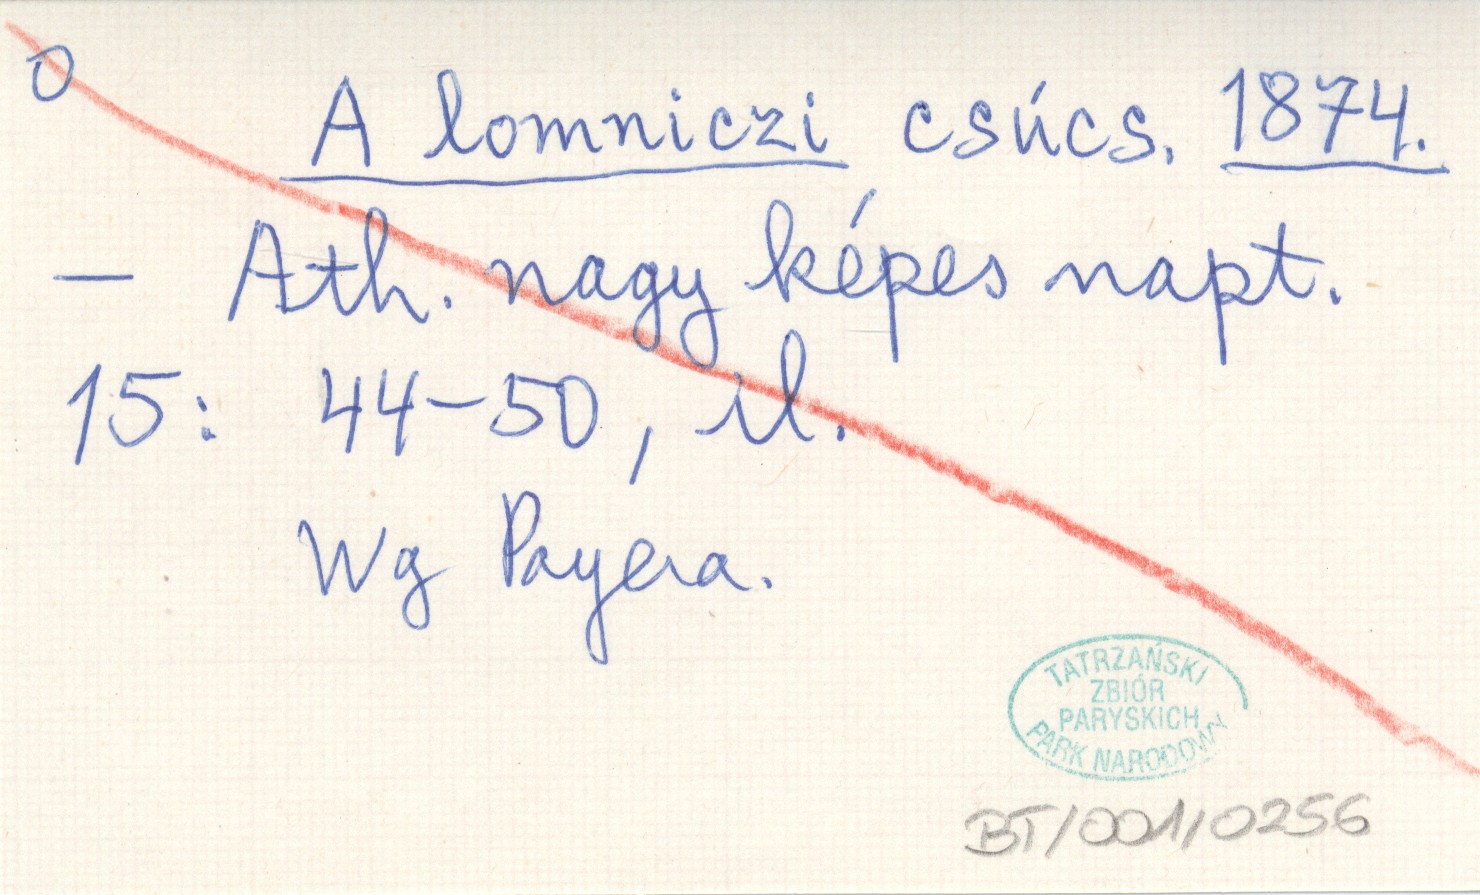 0
A lomniczi csúcs. 1874.
— Ath. nagy képes napt.
15: 44-50, il.
Wg Payera.
TATRZAŃSKI
ZBIÓR
PARYSKICH
PARK NARODOWY
BT/001/0256